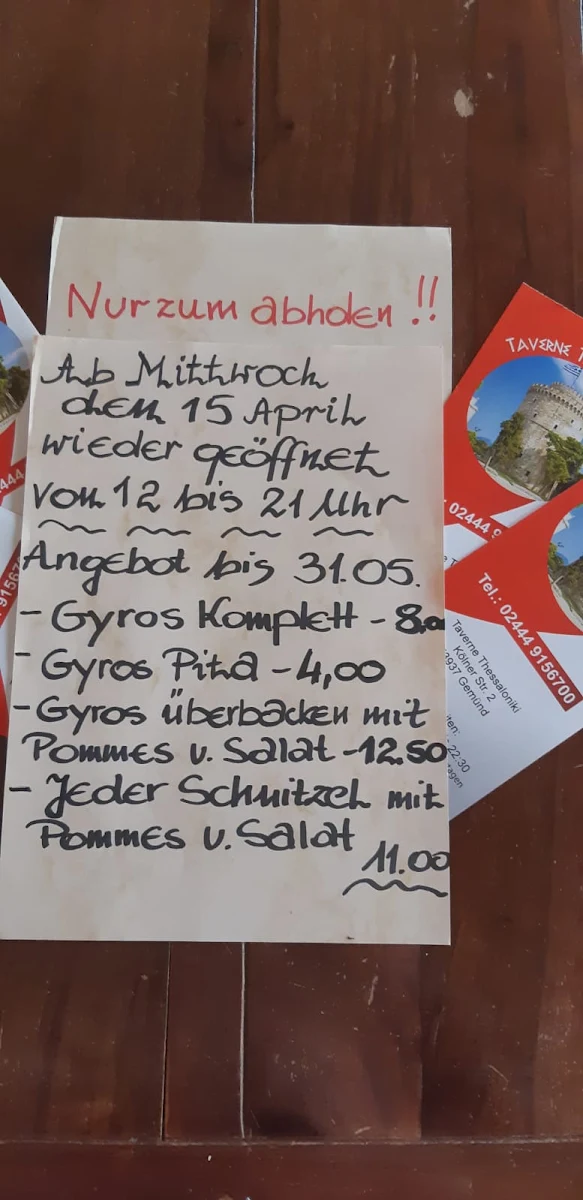 Nur zum abholen !!
Ab Mittwoch
den 15 April
wieder geöffnet
von 12 bis 21 Uhr
Angebot bis 31.05.
- Gyros Komplett - 8.0
- Gyros Pita - 4,00
- Gyros überbacken mit
Pommes u. Salat - 12.50
- Jeder Schnitzel mit
Pommes u. Salat
11.00
TAVERNE
02444 9
Tel.: 02444 9156700
Taverne Thessaloniki
Kölner Str. 2
3937 Gemünd
iten:
22.30
tagen
444
91567